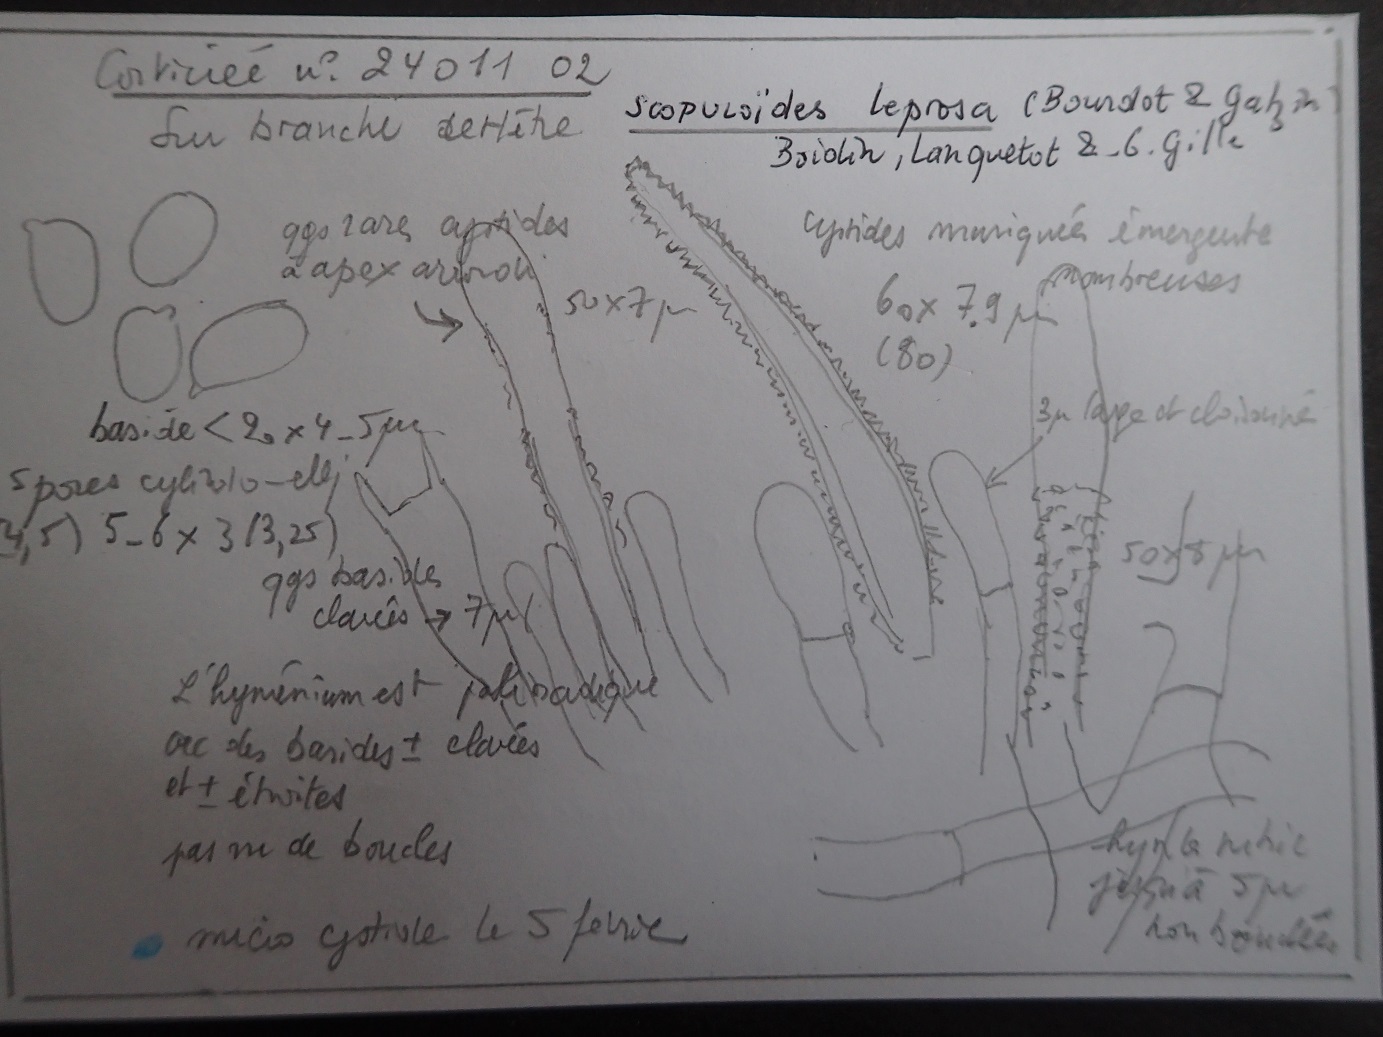 Corticiée n° 24011 02
Sur branche de hêtre
scopuloïdes leprosa (Bourdot & Galzin)
Boidin, Lanquetot & G. Gille
qqs rares cystides
à apex arrondi
50 x 7 µ
cystides muriquées émergente
nombreuses
60 x 7.9 µm
(80)
3µ large et cloisonné
baside < 20 x 4-5µm
spores cylindro-ellip
4,5) 5-6 x 3 (3,25)
50 x 8 µm
qqs basides
clavées → 7µ
L'hyménium est palissadique
avec des basides ± clavées
et ± étroites
pas vu de boucles
hyphe subic
jusqu'à 5µ
non bouclées
micro cystidiole le 5 février